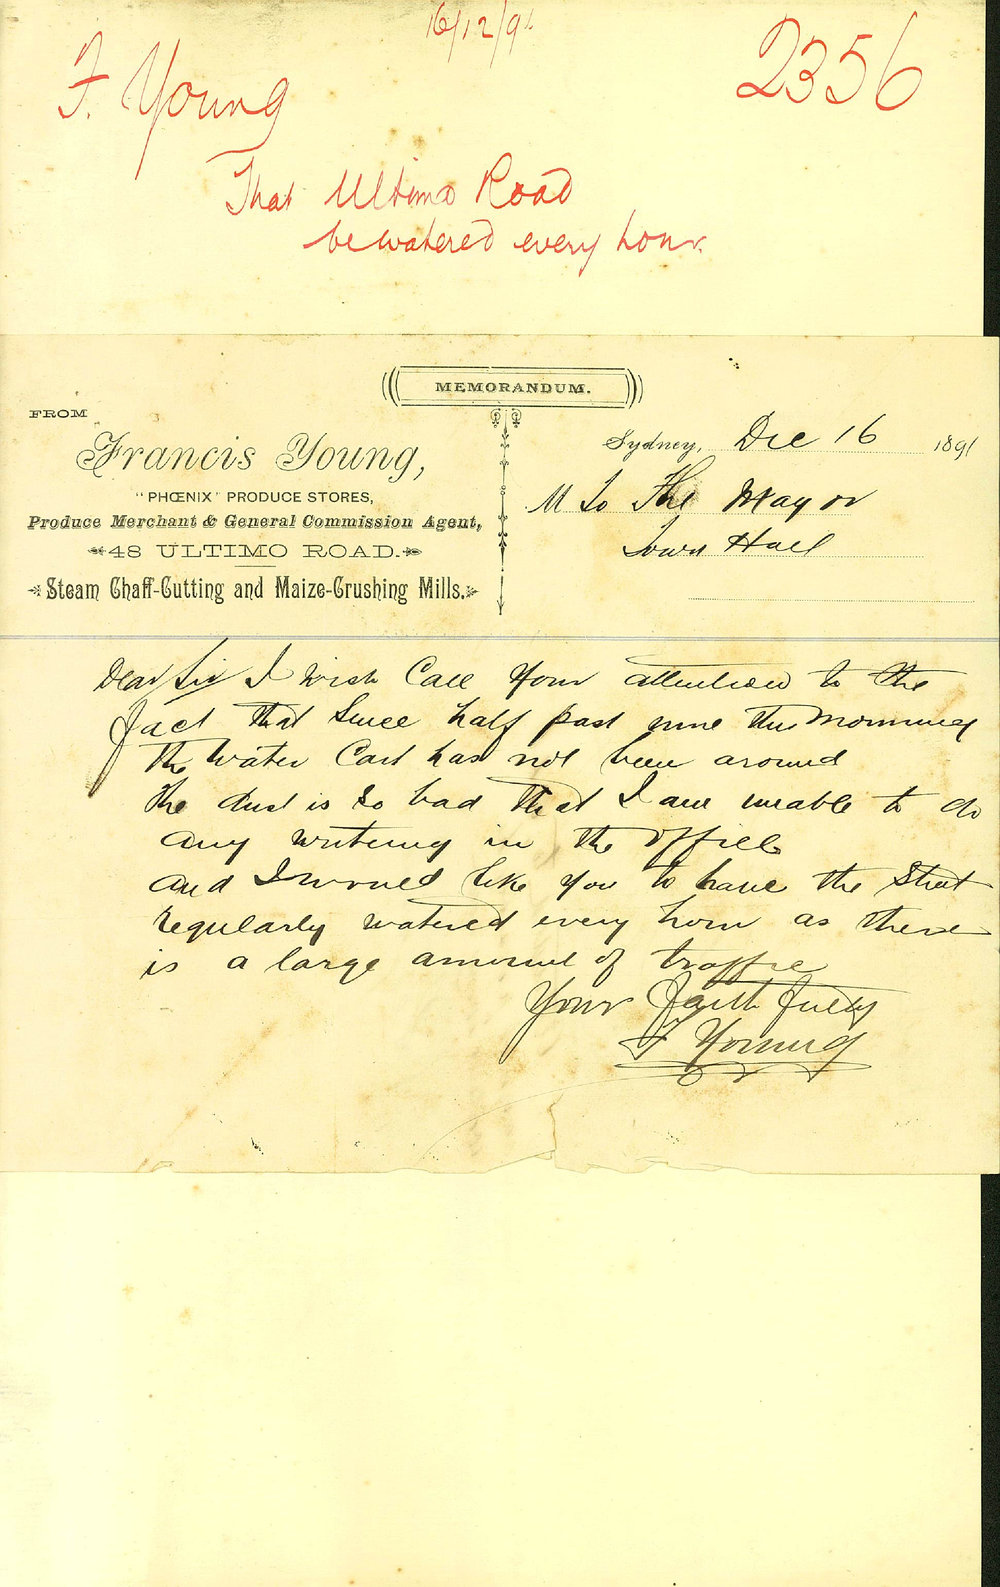 16/12/91
2356
F. Young
That Ultimo Road
be watered every hour.
MEMORANDUM.
FROM
Francis Young,
"PHŒNIX" PRODUCE STORES,
Produce Merchant & General Commission Agent,
48 ULTIMO ROAD.
Steam Chaff-Cutting and Maize-Crushing Mills.
Sydney, Dec 16 1891
M To The Mayor
Town Hall
Dear Sir I wish Call Your attention to the
fact that Since half past nine this Morning
the Water Cart has not been around
the dust is so bad that I am unable to do
any writeing in the office
and I would like you to have the Street
regularly watered every hour as there
is a large amount of traffic
Your Faith fully
F Young